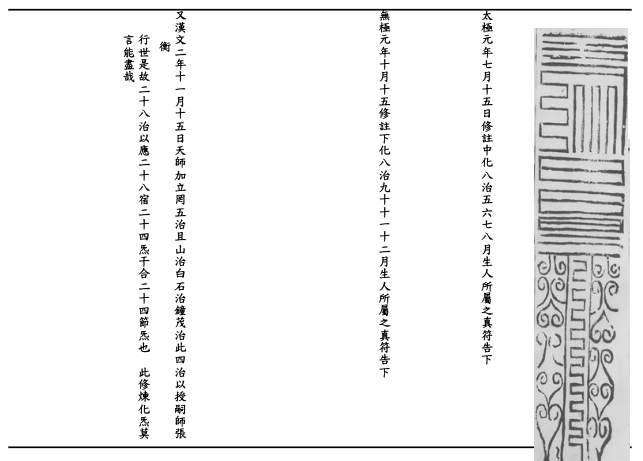 太極元年七月十五日修註中化八治五六七八月生人所屬之真符告下
無極元年十月十五修註下化八治九十十一十二月生人所屬之真符告下
又漢文二年十一月十五日天師加立罔五治且山治白石治鐘茂治此四治以授嗣師張
衡
行世是故二十八治以應二十八宿二十四炁干合二十四節炁也 此修煉化炁莫
言能盡哉